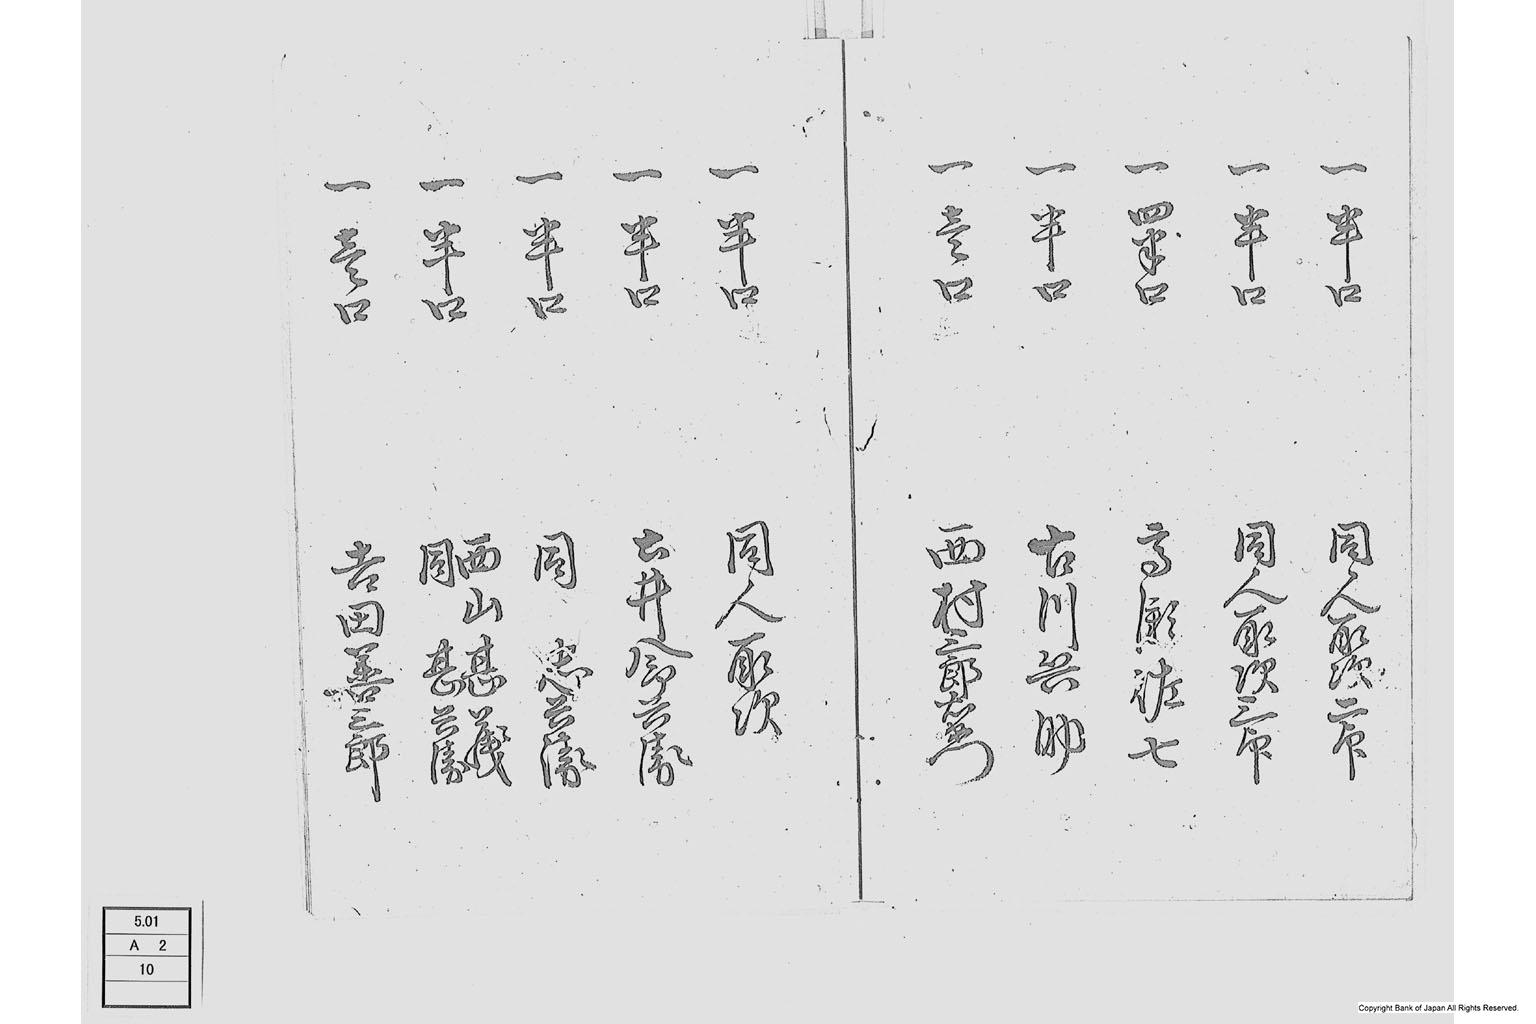 一 半口 同人取次二而
一 半口 同人取次二而
一 四半口 高原佐七
一 半口 古川与助
一 壱口 西村三郎右衛門
一 半口 同人取次
一 半口 土井八郎兵衛
一 半口 同 忠兵衛
一 半口 西山甚蔵 同 甚兵衛
一 壱口 吉田善三郎
5.01
A 2
10
Copyright Bank of Japan All Rights Reserved.